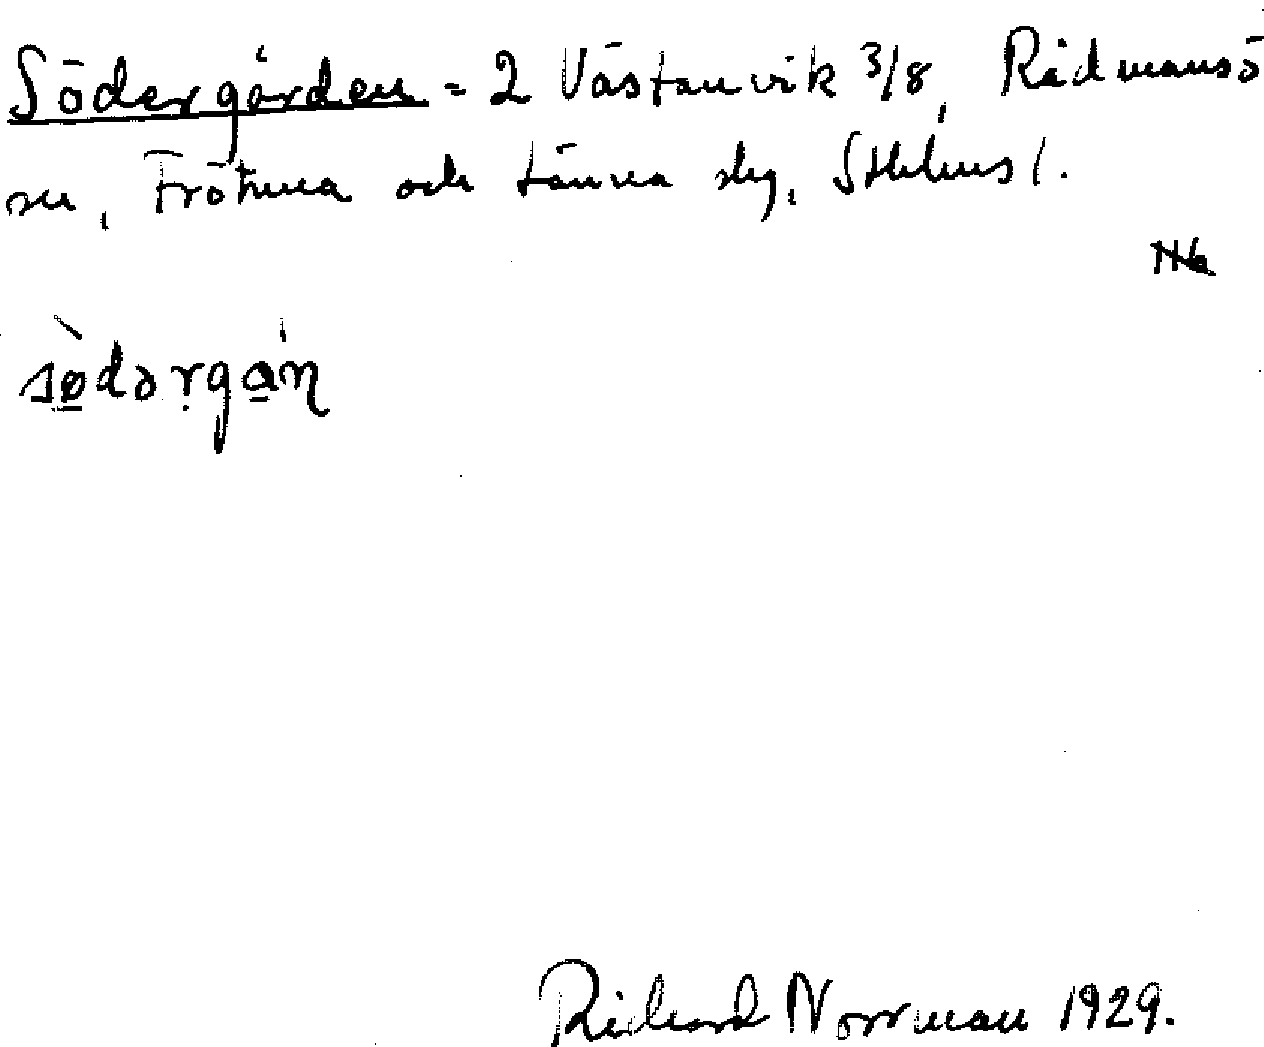 Södergården = 2 Västanvik 3/8, Rådmansö
sn, Frötuna och Länna skg, Sthlms l.
Na
sø̀dərgáṇ
Richard Norrman 1929.